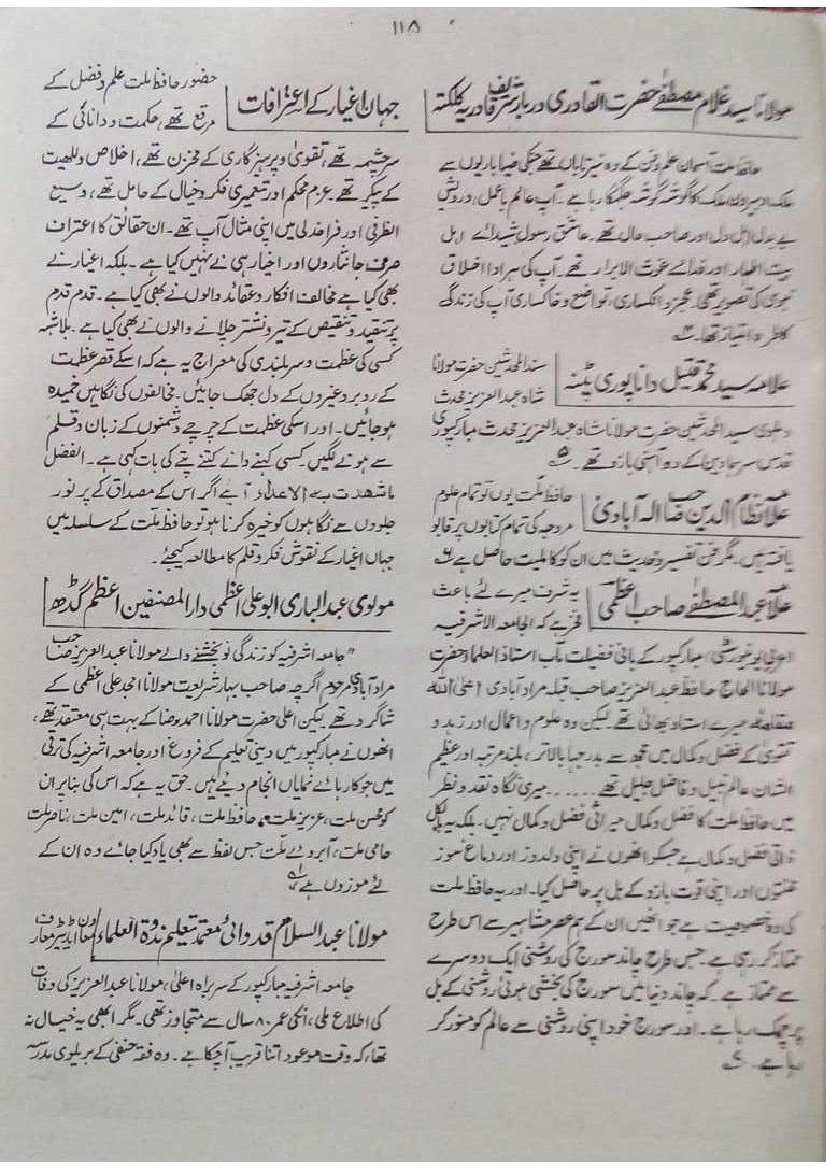 ۱۱۸
مولانا سید غلام مصطفےٰ حضرت القادری دربار شریف قادریہ کلکتہ
حافظ ملت آسمان علم وفن کے وہ نیر تاباں تھے جنکی ضیا باریوں سے
ملک وبیرون ملک کا گوشہ گوشہ جگمگا رہا ہے ۔ آپ عالم باعمل، درویش
بے بدل اہل دل اور صاحب حال تھے ۔ عاشق رسول شیدائے اہل
بیت اطہار اور فدائے غوث الابرار تھے ۔ آپ کی سراد اخلاق
نبوی کی تصویر تھی ۔ عجز و انکساری، تواضع وخاکساری آپ کی زندگی
کا طرہ امتیاز تھا ۔
علامہ سید محمد قتیل داناپوری پٹنہ
سند المحدثین حضرت مولانا
شاہ عبد العزیز محدث
دہلوی سید المحدثین حضرت مولانا شاہ عبد العزیز محدث مبارکپوری
قدس سرہما دین کے دو آہنی بازو تھے ۔
علامہ نظام الدین صاحب الہ آبادی
حافظ ملت یوں تو تمام علوم
مروجہ کی تمام کتابوں پر قابو
یافتہ ہیں ۔ مگر فن تفسیر وحدیث میں ان کو کاملیت حاصل ہے
علامہ عبد المصطفےٰ صاحب اعظمی
یہ شرف میرے لئے باعث
فخر ہے کہ الجامعۃ الاشرفیہ
(عربی یونیورسٹی) مبارکپور کے بانی فضیلت مآب استاذ العلماء حضرت
مولانا الحاج حافظ عبد العزیز صاحب قبلہ مراد آبادی (اعلی اللہ
مقامہ) میرے استاد بھائی تھے ۔ لیکن وہ علوم و اعمال اور زہد و
تقویٰ کے فضل وکمال میں مجھ سے بدرجہا بالاتر، بلند مرتبہ اور عظیم
الشان عالم نبیل و فاضل جلیل تھے ۔۔۔۔۔۔ میری نگاہ نقد و نظر
میں حافظ ملت کا فضل وکمال میراثی فضل وکمال نہیں ۔ بلکہ یہ بالکل
ذاتی فضل وکمال ہے جسکو انھوں نے اپنی دلدوز اور دماغ سوز
محنتوں اور اپنی قوت بازو کے بل پر حاصل کیا ۔ اور یہ حافظ ملت
کی وہ خصوصیت ہے جو انھیں ان کے ہم عصر مشاہیر سے اس طرح
ممتاز کر رہی ہے ۔ جس طرح چاند سورج کی روشنی ایک دوسرے
سے ممتاز ہے ۔ کہ چاند دنیا میں سورج کی بخشی ہوئی روشنی کے بل
پر چمک رہا ہے ۔ اور سورج خود اپنی روشنی سے عالم کو منور کر
رہا ہے ۔
جہان اغیار کے اعترافات
حضور حافظ ملت علم وفضل کے
مرقع تھے، حکمت و دانائی کے
سرچشمہ تھے، تقویٰ و پرہیزگاری کے مخزن تھے، اخلاص وللٰہیت
کے پیکر تھے ۔ عزم محکم اور تعمیری فکر وخیال کے حامل تھے، وسیع
الظرفی اور فراخدلی میں اپنی مثال آپ تھے ۔ ان حقائق کا اعتراف
صرف جانثاروں اور اخیار ہی نے نہیں کیا ہے ۔ بلکہ اغیار نے
بھی کیا ہے مخالف افکار وعقائد والوں نے بھی کیا ہے ۔ قدم قدم
پر تنقید و تنقیص کے تیر و نشتر چلانے والوں نے بھی کیا ہے ۔ بلاشبہ
کسی کی عظمت وسربلندی کی معراج یہ ہے کہ اسکے قصر عظمت
کے روبرو غیروں کے دل جھک جائیں ۔ مخالفوں کی نگاہیں خمیدہ
ہو جائیں ۔ اور اسکی عظمت کے چرچے دشمنوں کے زبان و قلم
سے ہونے لگیں ۔ کسی کہنے والے نے کتنے پتے کی بات کہی ہے ۔ الفضل
ما شھدت بہ الاعداء آپ اگر اس کے مصداق کے پر نور
جلووں سے نگاہوں کو خیرہ کرنا ہو تو حافظ ملت کے سلسلہ میں
جہان اغیار کے نقوش فکر وقلم کا مطالعہ کیجئے ۔
مولوی عبد الباری ابو علی اعظمی دار المصنفین اعظم گڈھ
"جامعہ اشرفیہ کو زندگی نو بخشنے والے مولانا عبد العزیز صاحب
مراد آبادی مرحوم اگرچہ صاحب بہار شریعت مولانا امجد علی اعظمی کے
شاگرد تھے لیکن اعلی حضرت مولانا احمد رضا کے بہت ہی معتقد تھے،
انھوں نے مبارکپور میں دینی تعلیم کے فروغ اور جامعہ اشرفیہ کی ترقی
میں جو کارہائے نمایاں انجام دیئے ہیں ۔ حق یہ ہے کہ اس کی بنا پر ان
کو محسن ملت، عزیز ملت، حافظ ملت، قائد ملت، امین ملت، ناصر ملت
حامی ملت، آبروئے ملت جس لفظ سے بھی یاد کیا جائے وہ ان کے
لئے موزوں ہے
مولانا عبد السلام قدوائی معتمد تعلیم ندوۃ العلماء / معاون ایڈیٹر معارف
جامعہ اشرفیہ مبارکپور کے سربراہ اعلیٰ، مولانا عبد العزیز کی وفات
کی اطلاع ملی، انکی عمر ۸۰ سال سے متجاوز تھی ۔ مگر ابھی یہ خیال نہ
تھا، کہ وقت موعود اتنا قریب آچکا ہے ۔ وہ فقہ حنفی کے بریلوی مدرسہ